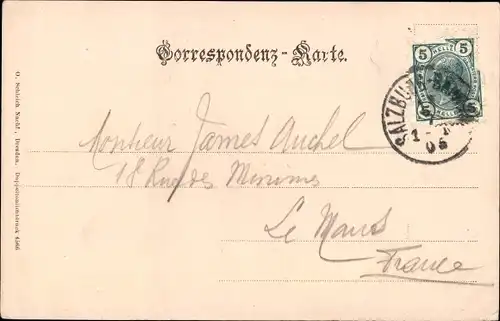 Correspondenz-Karte.
5 HELLER 5
5 5
SALZBURG
1
05
Monsieur James Auchel
18 Rue des Minimes
Le Mans
France
O. Schleich Nachf., Dresden. Doppeltonlichtdruck 4566